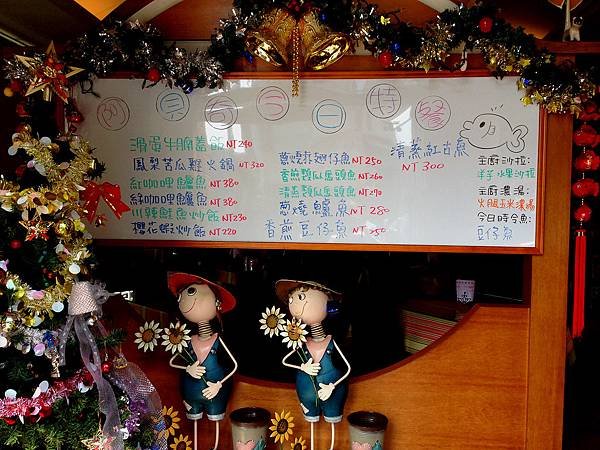 阿貝哥今日特餐
滑蛋牛腩蓋飯 NT240
鳳梨苦瓜雞火鍋 NT320
紅咖哩鱸魚 NT380
綠咖哩鱸魚 NT380
川辣鮭魚炒飯 NT230
櫻花蝦炒飯 NT220
蔥燒 仔魚 NT250
香煎 瓜馬頭魚 NT260
清蒸 瓜馬頭魚 NT290
蔥燒鱸魚 NT280
香煎豆仔魚 NT250
清蒸紅古魚
NT300
主廚沙拉:
洋芋水果沙拉
主廚濃湯:
火腿玉米濃湯
今日時令魚:
豆仔魚